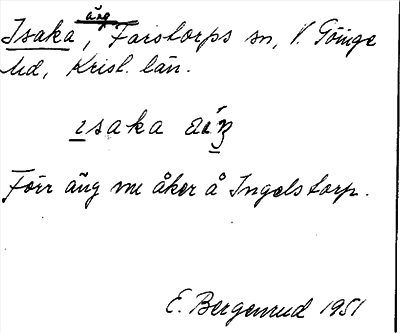 äng
Isaka, Farstorps sn, V. Göinge
hd, Krist. län.
ɪsaka
Förr äng nu åker å Ingelstorp.
E. Bergenrud 1951